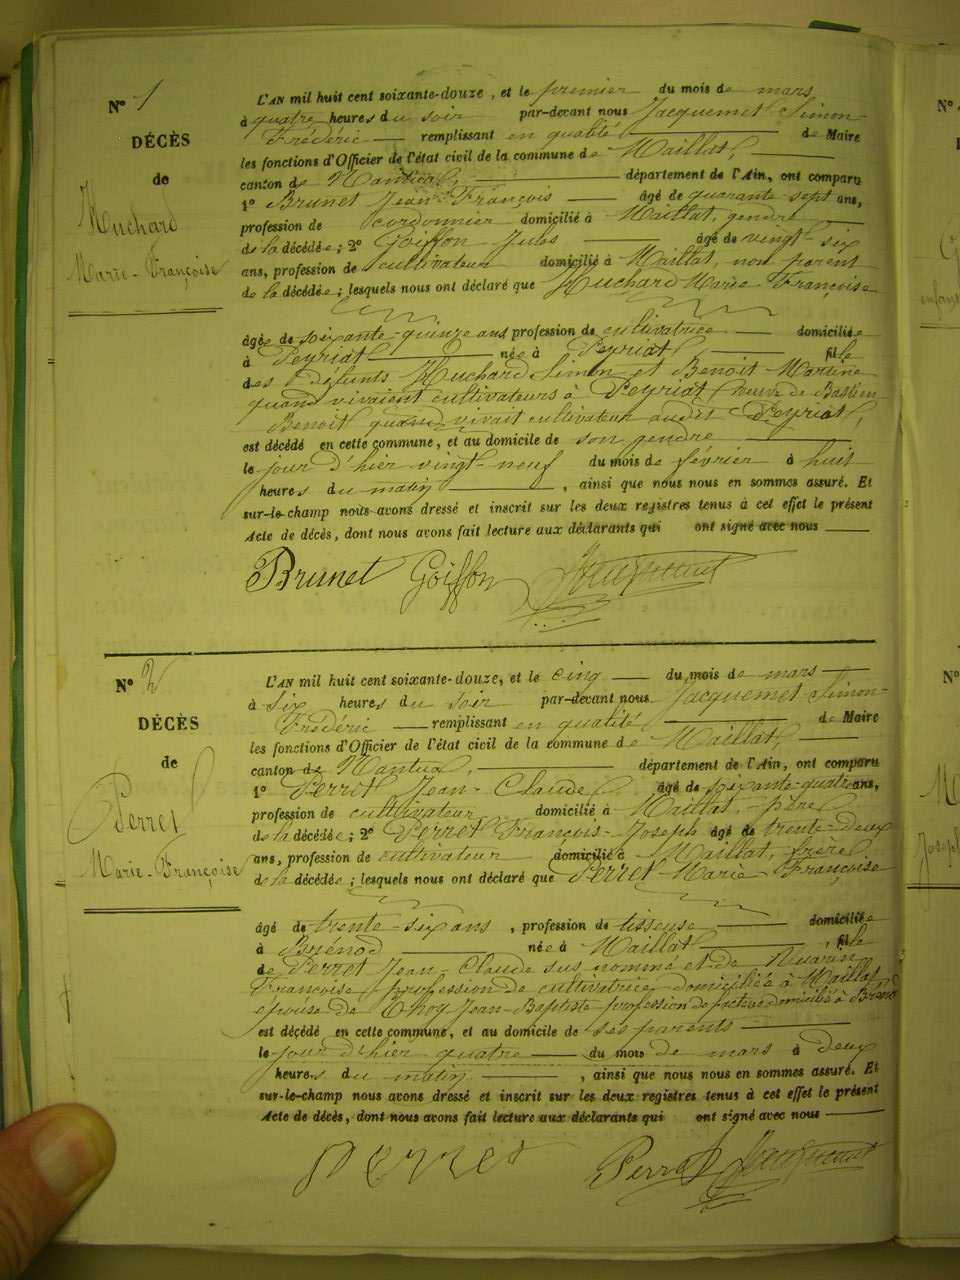 N° 1
DÉCÈS
de
Huchard
Marie-Françoise
L'AN mil huit cent soixante-douze, et le premier du mois de mars
à quatre heures du soir par-devant nous Jacquemet Simon
Frédéric remplissant en qualité de Maire
les fonctions d'Officier de l'état civil de la commune de Maillat,
canton de Nantua, département de l'Ain, ont comparu
1° Brunet Jean-François âgé de quarante sept ans,
profession de cordonnier domicilié à Maillat, gendre
de la décédée; 2° Goiffon Jules âgé de vingt-six
ans, profession de cultivateur domicilié à Maillat, non parent
de la décédée; lesquels nous ont déclaré que Huchard Marie Françoise
âgée de soixante-quinze ans profession de cultivatrice domiciliée
à Peyriat née à Peyriat, fille
des défunts Huchard Simon et Benoit Martine
quand vivaient cultivateurs à Peyriat, veuve de Bastien
Benoit quand vivait cultivateur audit Peyriat,
est décédé en cette commune, et au domicile de son gendre
le jour d'hier vingt-neuf du mois de février à huit
heures du matin, ainsi que nous nous en sommes assuré. Et
sur-le-champ nous avons dressé et inscrit sur les deux registres tenus à cet effet le présent
Acte de décès, dont nous avons fait lecture aux déclarants qui ont signé avec nous
Brunet Goiffon Jacquemet
N° 2
DÉCÈS
de
Perret
Marie-Françoise
L'AN mil huit cent soixante-douze, et le cinq du mois de mars
à six heures du soir par-devant nous Jacquemet Simon-
Frédéric remplissant en qualité de Maire
les fonctions d'Officier de l'état civil de la commune de Maillat,
canton de Nantua, département de l'Ain, ont comparu
1° Perret Jean-Claude âgé de soixante-quatre ans,
profession de cultivateur domicilié à Maillat, père
de la décédée; 2° Perret François-Joseph âgé de trente-deux
ans, profession de cultivateur domicilié à Maillat, frère
de la décédée; lesquels nous ont déclaré que Perret Marie Françoise
âgé de trente-six ans, profession de tisseuse domiciliée
à Brénod née à Maillat fille
de Perret Jean Claude sus nommé et de
Françoise profession de cultivatrice domiciliée à Maillat
épouse de Jean-Baptiste profession de domicilié à Brénod
est décédé en cette commune, et au domicile de ses parents
le jour d'hier quatre du mois de mars à deux
heures du matin, ainsi que nous nous en sommes assuré. Et
sur-le-champ nous avons dressé et inscrit sur les deux registres tenus à cet effet le présent
Acte de décès, dont nous avons fait lecture aux déclarants qui ont signé avec nous
perret Perret Jacquemet